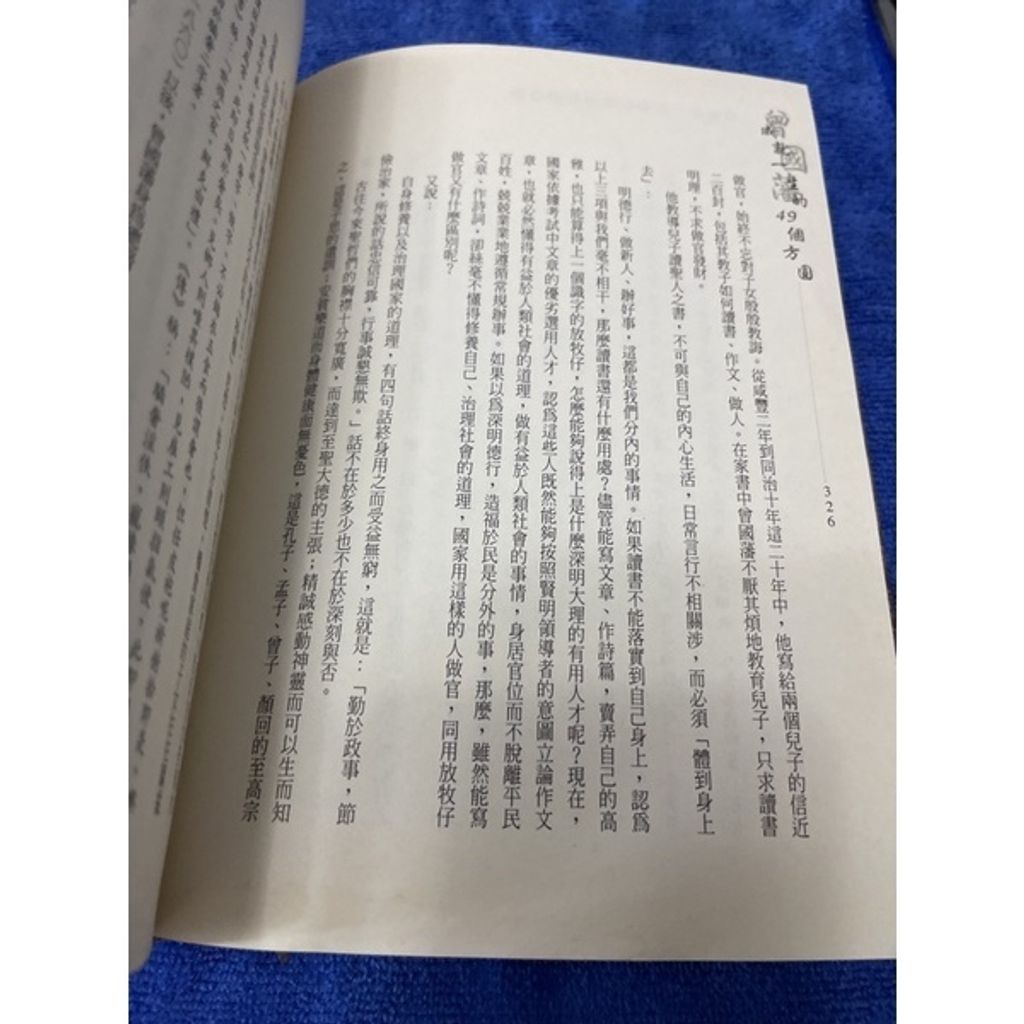 曾國藩的49個方圓
326
做官，始終不忘對子女殷殷教誨。從咸豐二年到同治十年這二十年中，他寫給兩個兒子的信近
二百封，包括其教子如何讀書、作文、做人。在家書中曾國藩不厭其煩地教育兒子，只求讀書
明理，不求做官發財。
他教導兒子讀聖人之書，不可與自己的內心生活，日常言行不相關涉，而必須「體到身上
去」：
明德行、做新人、辦好事，這都是我們分內的事情。如果讀書不能落實到自己身上，認為
以上三項與我們毫不相干，那麼讀書還有什麼用處？儘管能寫文章、作詩篇，賣弄自己的高
雅，也只能算得上一個識字的放牧仔，怎麼能夠說得上是什麼深明大理的有用人才呢？現在，
國家依據考試中文章的優劣選用人才，認為這些人既然能夠按照賢明領導者的意圖立論作文
章，也就必然懂得有益於人類社會的道理，做有益於人類社會的事情，身居官位而不脫離平民
百姓，兢兢業業地遵循常規辦事。如果以為深明德行，造福於民是分外的事，那麼，雖然能寫
文章、作詩詞，卻絲毫不懂得修養自己、治理社會的道理，國家用這樣的人做官，同用放牧仔
做官又有什麼區別呢？
又說：
自身修養以及治理國家的道理，有四句話終身用之而受益無窮，這就是：「勤於政事，節
儉治家，所說的話忠信可靠，行事誠懇無欺。」話不在於多少也不在於深刻與否。
古往今來聖哲們的胸襟十分寬廣，而達到至聖大德的主張；精誠感動神靈而可以生而知
之，這是子他的遺訓；安貧樂道而身體健康而無憂色，這是孔子、孟子、曾子、顏回的至高宗